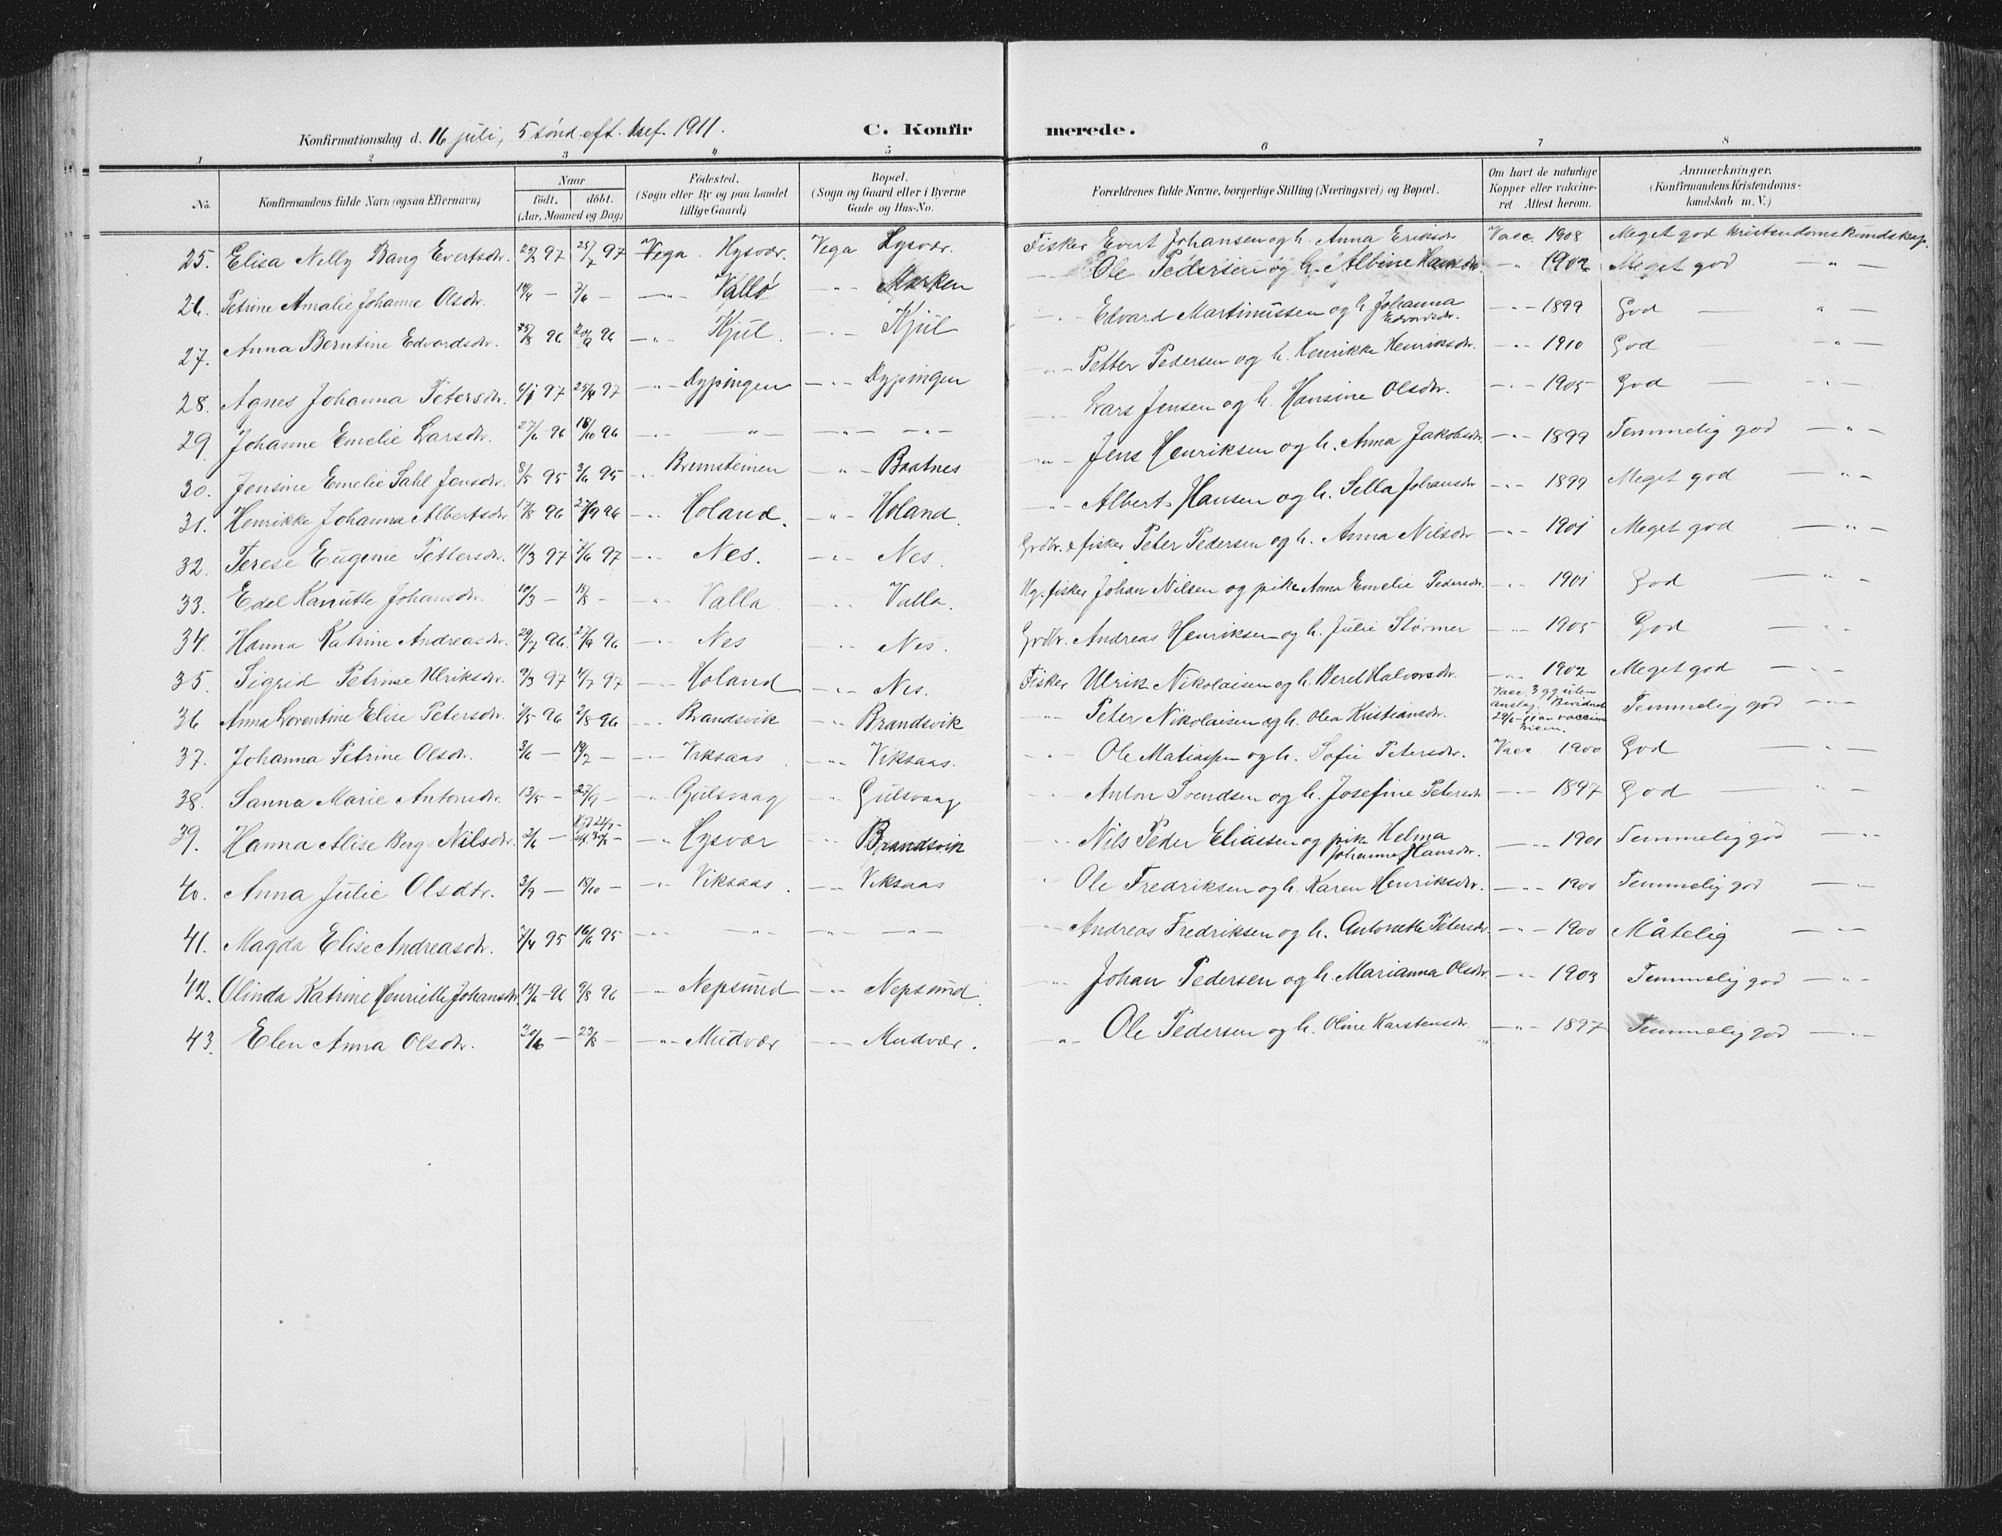 Konfirmationsdag d. 16 juli, 5 sönd. eft. tref. 1911. C. Konfirmerede.
1 2 3 4 5 6 7 8
No. Konfirmandens fulde Navn (ogsaa Efternavn) Naar födt. döbt. (Aar, Maaned og Dag) Födested. (Sogn eller By og paa Landet tillige Gaard) Bopæl. (Sogn og Gaard eller i Byerne Gade og Hus-No. Forældrenes fulde Navne, borgerlige Stilling (Næringsvei) og Bopæl. Om havt de naturlige Kopper eller vakcineret Attest herom. Anmærkninger. (Konfirmandens Kristendomskundskab m. V.)
25. Elisa Nelly Bang Evertsdr. 97 25/7 97 Vega Hysvær Vega Hysvær. Fisker Evert Johansen og h. Anna Eriksdr. Vacc. 1908 Meget god kristendomskundskap.
26. Petrine Amalie Johanne Olsdr. 14/4 — 7/6 — —"— Vallö —"— Marken —"— Ole Pedersen og h. Albine Hansdr. —"— 1902 Meget god —"—
27. Anna Berntine Edvardsdr. 25/8 96 20/9 96 —"— Kjul. —"— Kjul —"— Edvard Martinussen og h. Johanna Edvardsdr. —"— 1899 God — "
28. Agnes Johanna Petersdr. 6/1 97 25/4 97 —"— Dypingen —"— Dypingen —"— Petter Pedersen og h. Henrikke Henriksdr. —"— 1910 God —"—
29. Johanne Emelie Larsdr. 27/6 96 18/10 96 —"— —"— —"— —"— Lars Jensen og h. Hansine Olsdr. —"— 1905 God —"—
30. Jensine Emelie Sahl Jensdr. 8/5 95 3/6 95 —"— Bremsteinen —"— Baatnes —"— Jens Henriksen og h. Anna Jakobsdr. —"— 1899 Temmelig god —"—
31. Henrikke Johanna Albertsdr. 17/8 96 27/9 96 —"— Holand. —"— Holand. —"— Albert Hansen og h. Sella Johansdr —"— 1899 Meget god —"—
32. Terese Eugenie Pettersdr. 11/3 97 7/6 97 —"— Nes. —"— Nes. Grdbr. & fisker Peter Pedersen og h. Anna Nilsdr. —"— 1901 Meget god —"—
33. Edel Johansdr. 10/3 — 15/8 — —"— Valla —"— Valla. fisker Johan Nilsen og pike Anna Emelie Pedersdr. —"— 1901 God —"—
34. Hanna Katrine Andreasdr. 29/7 96 27/9 96 —"— Nes —"— Nes. Grdbr. Andreas Henriksen og h. Julie Störmer —"— 1905 God —"—
35. Sigrid Petrine Ulriksdr. 9/3 97 11/7 97 —"— Holand —"— Nes. Fisker Ulrik Nikolaisen og h. Berel Halvorsdr. —"— 1902 Meget god —"—
36 Anna Lorentine Elise Petersdr. 1/5 96 2/8 96 —"— Brandsvik —"— Brandsvik —"— Peter Nikolaisen og h. Olea Kristiansdr. Vacc. 3 gg uten anslag. Temmelig god —"—
37. Johanna Petrine Olsdr. 3/6 — 19/7 — —"— Viksaas —"— Viksaas. —"— Ole Matiassen og h. Sofie Petersdr. Vacc. 1900 God —"—
38. Sanna Marie Antonsdr. 13/5 — 27/9 — —"— Gulsvaag —"— Gulsvaag —"— Anton Svendsen og h. Josefine Petersdr. —"— 1897 God —"—
39. Hanna Alise Berg Nilsdr. 2/6 — —"— Hysvær —"— Brandsvik —"— Nils Peder Eliassen og pike Helma Johanne Hansdr. —"— 1901 Temmelig god —"—
40. Anna Julie Olsdtr. 3/9 — 18/10 — —"— Viksaas. —"— Viksaas —"— Ole Fredriksen og h. Karen Henriksdr. —"— 1900 Temmelig god —"—
41. Magda Elise Andreasdr. 7/4 95 16/6 95 —"— —"— —"— —"— Andreas Fredriksen og h. Antonette Petersdr. —"— 1900 Måtelig —"—
42. Olinda Katrine Henriette Johansdr. 96 9/8 96 —"— Nepsund —"— Nepsund. —"— Johan Pedersen og h. Marianna Olsdr. —"— 1903 Temmelig god —"—
43. Elen Anna Olsdr. 20/6 — 23/8 — —"— Mudvær —"— Mudvær. —"— Ole Pedersen og h. Oline Karstensdr. —"— 1897 Temmelig god —"—